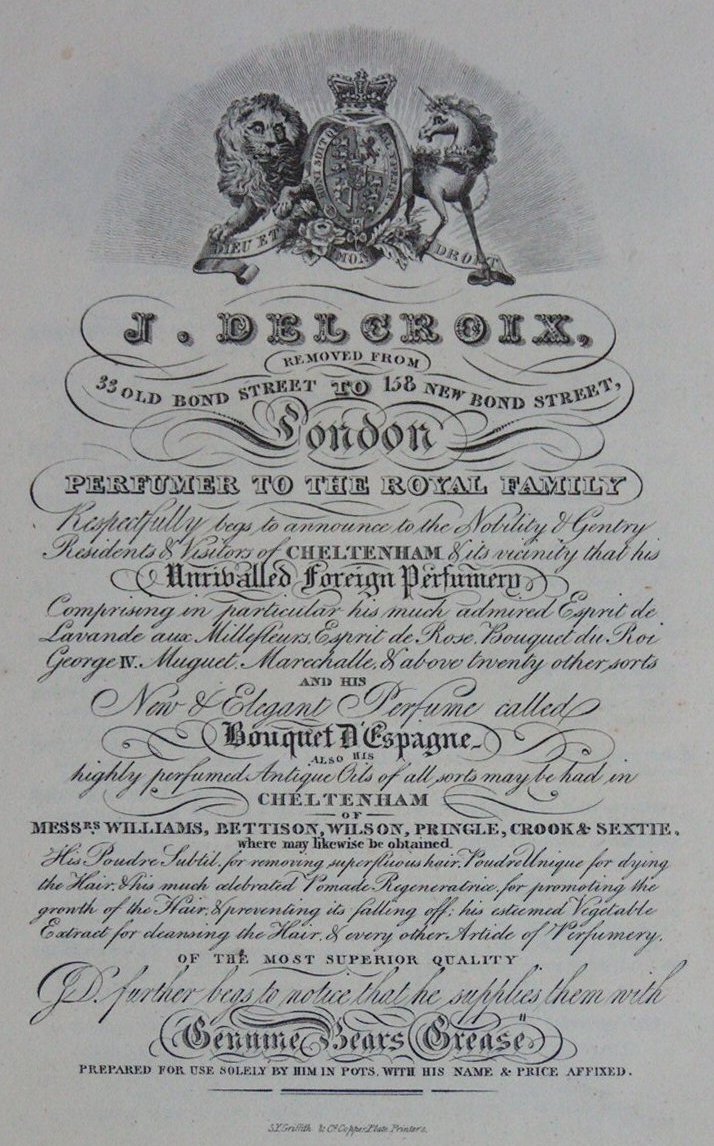 HONI SOIT QUI MAL Y PENSE
DIEU ET MON DROIT
J. DELCROIX,
REMOVED FROM
33 OLD BOND STREET TO 158 NEW BOND STREET,
London
PERFUMER TO THE ROYAL FAMILY
Respectfully begs to announce to the Nobility & Gentry
Residents & Visitors of CHELTENHAM & its vicinity that his
Unrivalled Foreign Perfumery
Comprising in particular his much admired Esprit de
Lavande aux Millefleurs, Esprit de Rose, Bouquet du Roi
George IV. Muguet, Marechalle, & above twenty other sorts
AND HIS
New & Elegant Perfume called
Bouquet D'Espagne_
ALSO HIS
highly perfumed Antique Oils of all sorts may be had in
CHELTENHAM
OF
MESSRS WILLIAMS, BETTISON, WILSON, PRINGLE, CROOK & SEXTIE.
where may likewise be obtained.
His Poudre Subtil, for removing superfluous hair, Poudre Unique for dying
the Hair, & his much celebrated Pomade Regeneratrice, for promoting the
growth of the Hair, & preventing its falling off; his esteemed Vegetable
Extract for cleansing the Hair, & every other Article of Perfumery,
OF THE MOST SUPERIOR QUALITY
J.D. further begs to notice that he supplies them with
Genuine Bears Grease"
PREPARED FOR USE SOLELY BY HIM IN POTS, WITH HIS NAME & PRICE AFFIXED.
S.Y. Griffith & Co. Copper Plate Printers.